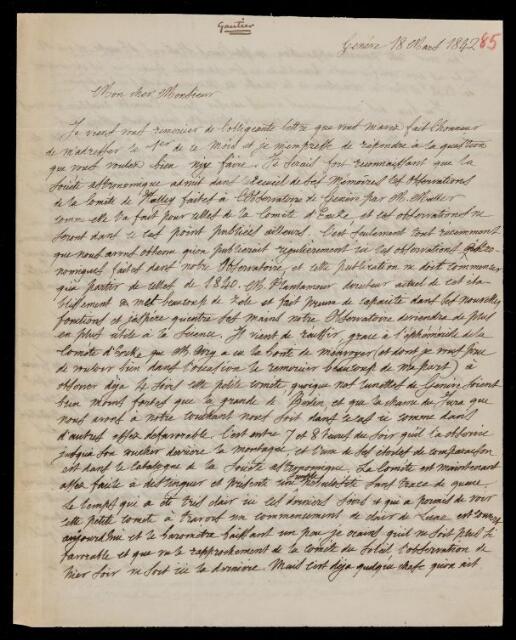 Gautier
Genève 18 Mars 1842 85
Mon cher Monsieur
Je viens vous remercier de l'obligeante lettre que vous m'avez fait l'honneur
de m'adresser le 1er de ce mois et je m'empresse de répondre à la question
que vous voulez bien m'y faire. Je serais fort reconnaissant que la
Société astronomique admit dans le Recueil de ses Mémoires les observations
de la Comète de Halley faites à l'Observatoire de Genève par M. Muller
comme elle l'a fait pour celles de la Comète d'Encke, et ces observations ne
seront dans ce cas point publiées ailleurs. C'est seulement tout récemment
que nous avons obtenu qu'on publierait régulièrement ici les observations astro-
nomiques faites dans notre Observatoire, et cette publication ne doit commencer
qu'à partir de celles de 1840. M. Plantamour, directeur actuel de cet éta-
blissement y met beaucoup de zèle et fait preuve de capacité dans ses nouvelles
fonctions et j'espère qu'entre ses mains notre Observatoire deviendra de plus
en plus utile à la Science. Il vient de réussir, grace à l'éphéméride de la
Comète d'Encke que M. Airy a eu la bonté de m'envoyer (et dont je vous prie
de vouloir bien dans l'occasion le remercier beaucoup de ma part) à
observer déja 4 fois cette petite comète, quoique nos lunettes de Genève soient
bien moins fortes que la grande de Berlin, et que la chaine du Jura que
nous avons à notre couchant nous soit dans ce cas ci comme dans
d'autres assez défavorable. C'est entre 7 et 8 heures du soir qu'il l'a observée
jusqu'à son coucher derrière la montagne, et l'une de ses étoiles de comparaison
est dans le catalogue de la Société astronomique. La Comète est maintenant
assez facile à distinguer et présente une nébulosité sans trace de queue.
Le temps qui a été très clair ici ces derniers soirs et qui a permis de voir
cette petite comète à travers un commencement de clair de Lune est couvert
aujourd'hui et le baromètre baissant un peu je crains qu'il ne soit plus si
favorable et que vu le rapprochement de la comète du Soleil l'observation de
hier soir ne soit ici la dernière. Mais c'est déja quelque chose qu'on ait